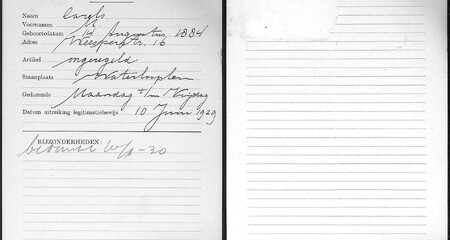 Naam
Voornamen M.
Geboortedatum 14 Augustus 1884
Adres Weesperstr. 16
Artikel ongeregeld
Staanplaats Waterlooplein
Gedurende Maandag t/m Vrijdag
Datum uitreiking legitimatiebewijs 10 Juni 1929
BIJZONDERHEDEN:
bedankt